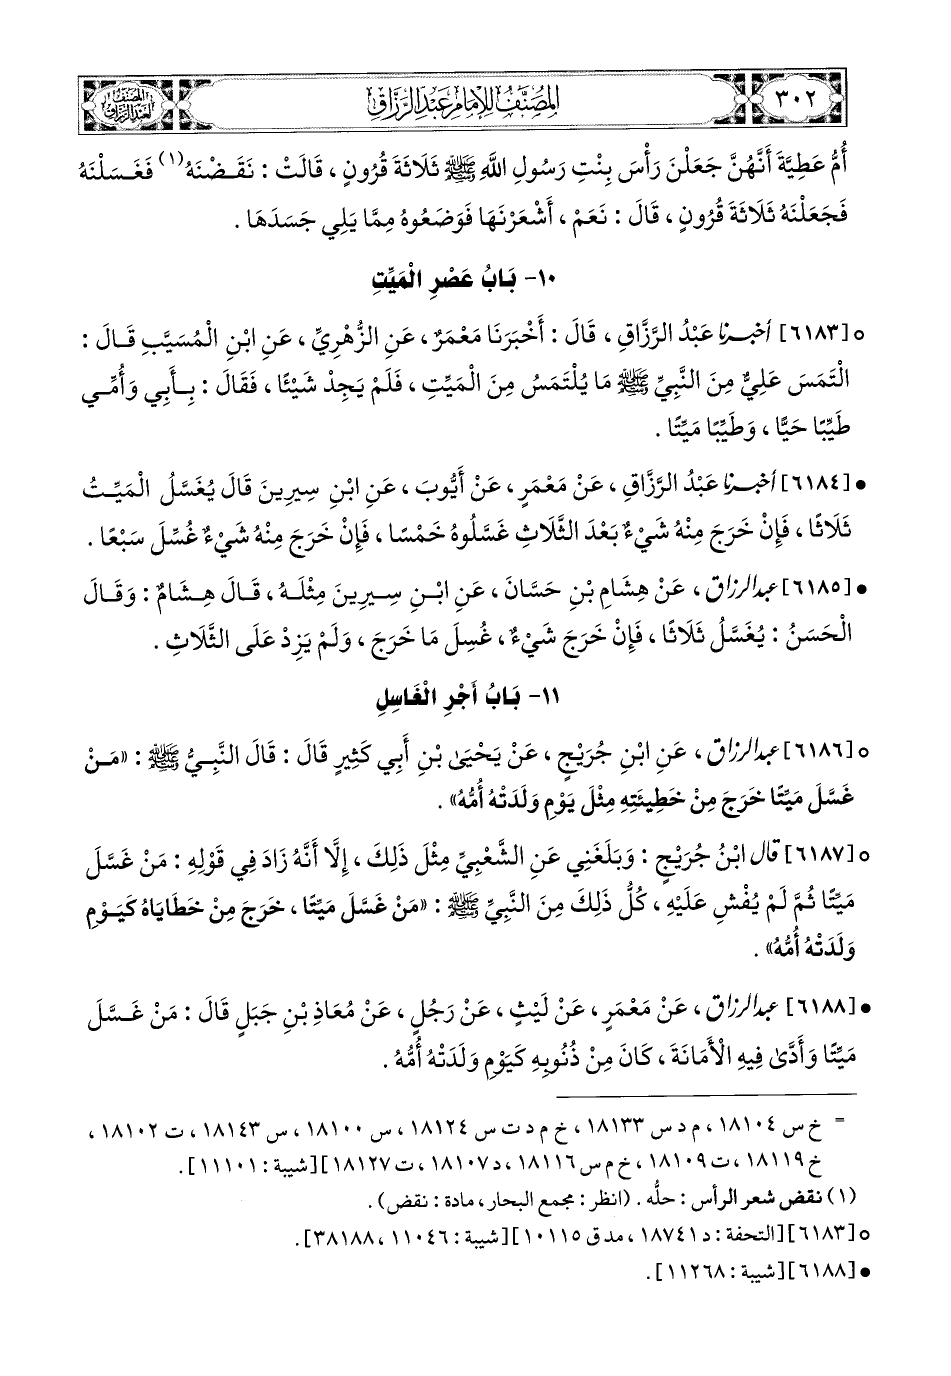 ٣٠٢
المصنف للإمام عبد الرزاق
المصنف لعبد الرزاق
أُمُّ عَطِيَّةَ أَنَّهُنَّ جَعَلْنَ رَأْسَ بِنْتِ رَسُولِ اللَّهِ ﷺ ثَلَاثَةَ قُرُونٍ ، قَالَتْ : نَقَضْنَهُ (١) فَغَسَلْنَهُ
فَجَعَلْنَهُ ثَلَاثَةَ قُرُونٍ ، قَالَ : نَعَمْ ، أَشْعَرْنَهَا فَوَضَعُوهُ مِمَّا يَلِي جَسَدَهَا .
١٠- بَابُ عَصْرِ الْمَيِّتِ
○ [٦١٨٣] أخبرنا عَبْدُ الرَّزَّاقِ ، قَالَ : أَخْبَرَنَا مَعْمَرٌ ، عَنِ الزُّهْرِيِّ ، عَنِ ابْنِ الْمُسَيَّبِ قَالَ :
الْتَمَسَ عَلِيٌّ مِنَ النَّبِيِّ ﷺ مَا يُلْتَمَسُ مِنَ الْمَيِّتِ ، فَلَمْ يَجِدْ شَيْئًا ، فَقَالَ : بِأَبِي وَأُمِّي
طَيِّبًا حَيًّا ، وَطَيِّبًا مَيِّتًا .
● [٦١٨٤] أخبرنا عَبْدُ الرَّزَّاقِ ، عَنْ مَعْمَرٍ ، عَنْ أَيُّوبَ ، عَنِ ابْنِ سِيرِينَ قَالَ يُغَسَّلُ الْمَيِّتُ
ثَلَاثًا ، فَإِنْ خَرَجَ مِنْهُ شَيْءٌ بَعْدَ الثَّلَاثِ غَسَّلُوهُ خَمْسًا ، فَإِنْ خَرَجَ مِنْهُ شَيْءٌ غُسِّلَ سَبْعًا .
● [٦١٨٥] عبد الرزاق ، عَنْ هِشَامِ بْنِ حَسَّانَ ، عَنِ ابْنِ سِيرِينَ مِثْلَهُ ، قَالَ هِشَامٌ : وَقَالَ
الْحَسَنُ : يُغَسَّلُ ثَلَاثًا ، فَإِنْ خَرَجَ شَيْءٌ ، غُسِلَ مَا خَرَجَ ، وَلَمْ يَزِدْ عَلَى الثَّلَاثِ .
١١- بَابُ أَجْرِ الْغَاسِلِ
○ [٦١٨٦] عبد الرزاق ، عَنِ ابْنِ جُرَيْجٍ ، عَنْ يَحْيَى بْنِ أَبِي كَثِيرٍ قَالَ : قَالَ النَّبِيُّ ﷺ : «مَنْ
غَسَّلَ مَيِّتًا خَرَجَ مِنْ خَطِيئَتِهِ مِثْلَ يَوْمِ وَلَدَتْهُ أُمُّهُ» .
○ [٦١٨٧] قال ابْنُ جُرَيْجٍ : وَبَلَغَنِي عَنِ الشَّعْبِيِّ مِثْلَ ذَلِكَ ، إِلَّا أَنَّهُ زَادَ فِي قَوْلِهِ : مَنْ غَسَّلَ
مَيِّتًا ثُمَّ لَمْ يُفْشِ عَلَيْهِ ، كُلُّ ذَلِكَ مِنَ النَّبِيِّ ﷺ : «مَنْ غَسَّلَ مَيِّتًا ، خَرَجَ مِنْ خَطَايَاهُ كَيَوْمِ
وَلَدَتْهُ أُمُّهُ» .
● [٦١٨٨] عبد الرزاق ، عَنْ مَعْمَرٍ ، عَنْ لَيْثٍ ، عَنْ رَجُلٍ ، عَنْ مُعَاذِ بْنِ جَبَلٍ قَالَ : مَنْ غَسَّلَ
مَيِّتًا وَأَدَّى فِيهِ الْأَمَانَةَ ، كَانَ مِنْ ذُنُوبِهِ كَيَوْمِ وَلَدَتْهُ أُمُّهُ .
= خ س ١٨١٠٤ ، م د س ١٨١٣٣ ، خ م د ت س ١٨١٢٤ ، س ١٨١٠٠ ، س ١٨١٤٣ ، ت ١٨١٠٢ ،
خ ١٨١١٩ ، ت ١٨١٠٩ ، خ م س ١٨١١٦ ، د ١٨١٠٧ ، ت ١٨١٢٧] [شيبة : ١١١٠١].
(١) نقض شعر الرأس : حلُّه . (انظر : مجمع البحار ، مادة : نقض).
○ [٦١٨٣] [التحفة : د ١٨٧٤١ ، مد ق ١٠١١٥] [شيبة : ١١٠٤٦ ، ٣٨١٨٨].
● [٦١٨٨] [شيبة : ١١٢٦٨].